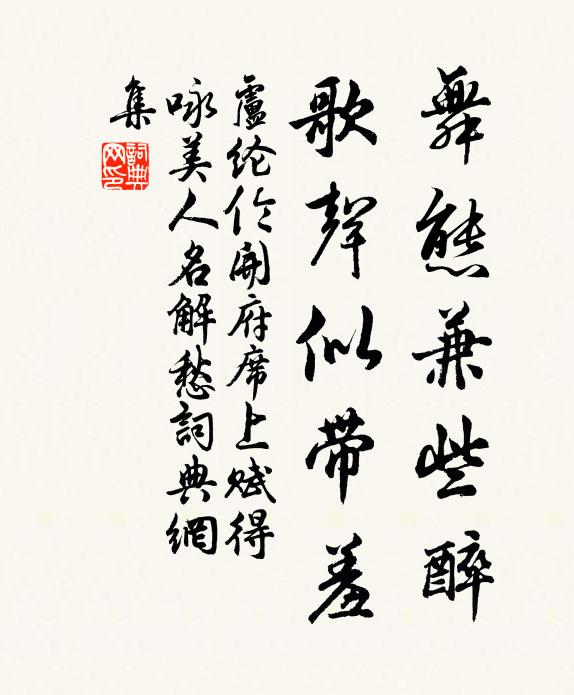 舞態兼些醉
歌聲似帶羞
盧纶伦開府席上賦得
咏美人名解愁詞典網
集
詞典
网印